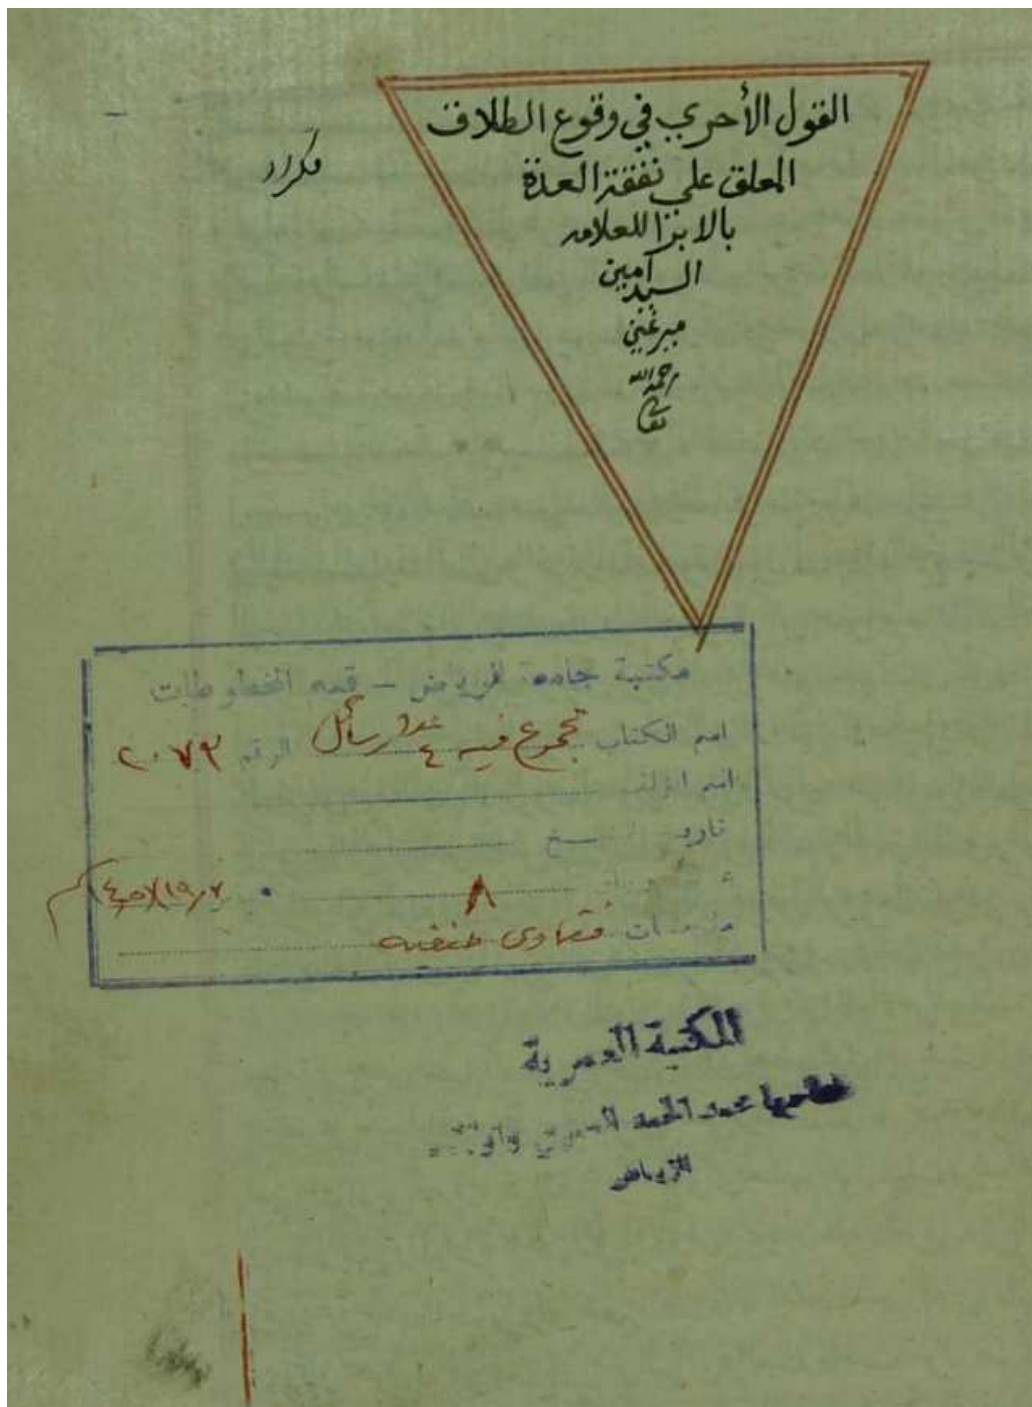 القول الأحري في وقوع الطلاق
المعلق علي نفقة العدة
بالابرا للعلامه
السيد امين
ميرغني
رحمه الله
تعالى
مكرر
مكتبة جامعة الرياض – قسم المخطوطات
اسم الكتاب مجموع فيه ٤ رسائل الرقم ٢٠٧٣
اسم المؤلف
تاريخ النسخ
٨
فتاوى حنفيه
المكتبة العمرية
لصاحبها محمد الحمد العمري
الرياض